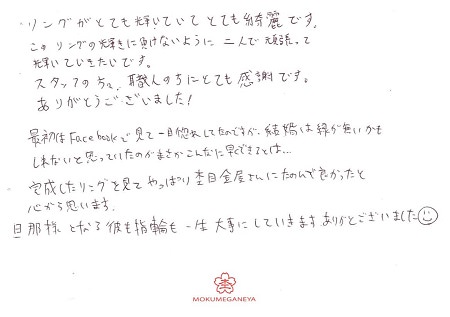 リングがとても輝いていてとても綺麗です。
このリングの輝きに負けないように二人で頑張って
輝いていきたいです。
スタッフの方々、職人の方にとても感謝です。
ありがとうございました!
最初はFacebookで見て一目惚れしてたのですが、結婚は縁が無いかも
しれないと思っていたのがまさかこんなに早くできるとは…
完成したリングを見てやっぱり杢目金屋さんにたのんで良かったと
心から思います。
旦那様となる彼も指輪も一生大事にしていきます ありがとございました
杢
MOKUMEGANEYA